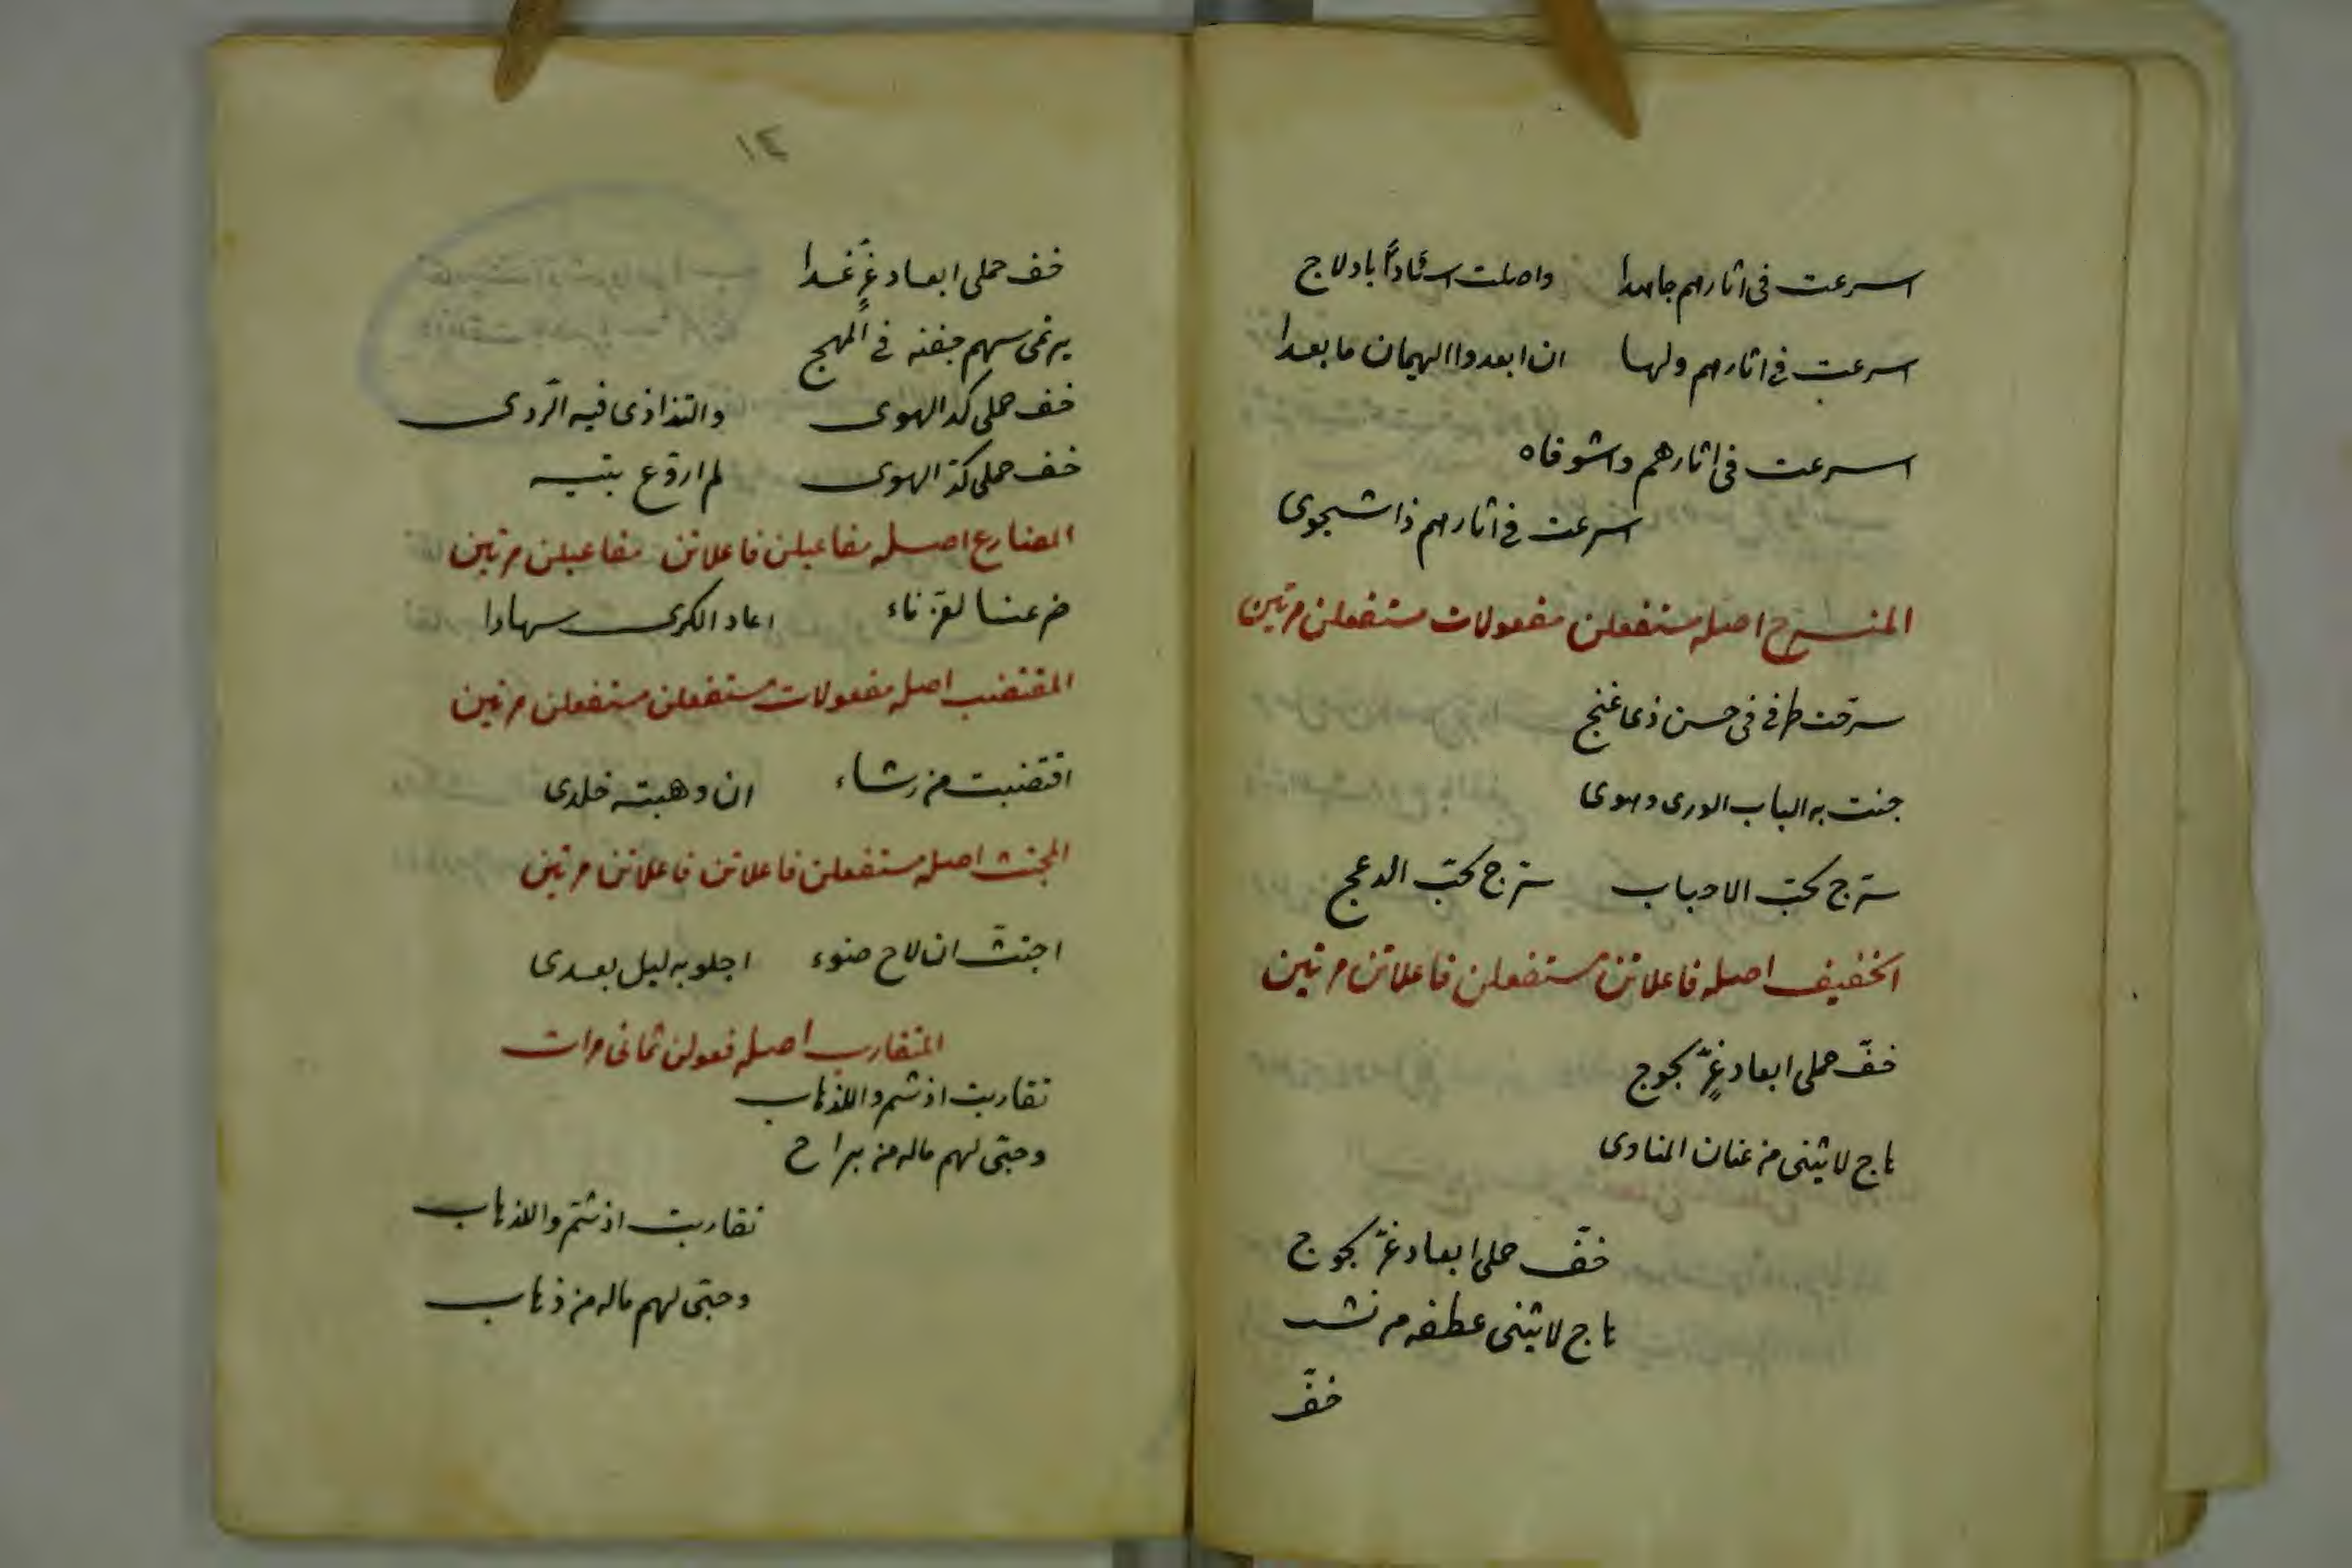 اسرعت في اثارهم جاهدا واصلت اسآدًا بادلاج
اسرعت في اثارهم ولها ان ابعدوا الهيمان ما بعدا
اسرعت في اثارهم واشوقاه
اسرعت في اثارهم ذا شجوى
المنسرح اصله مستفعلن مفعولات مستفعلن مرتين
سرحت طرفي في حسن ذى غنج
جنت به الباب الورى وهوى
سترج بحبّ الاحباب سترج بحبّ الدعج
الخفيف اصله فاعلاتن مستفعلن فاعلاتن مرتين
خفّ حملى ابعاد غرٍّ بجوج
ناج لا يثنى من عنان المناوى
خفّ حملى ابعاد غرّ بجوج
ناج لا يثنى عطفه من نشب
خفّ
١٤
خف حملى ابعاد غرٍّ غدا
يرتمى سهم جفنه في المهج
خف حملى كد الهوى والتذاذى فيه الرّدى
خف حملى كدّ الهوى لم اروع بتيه
المضارع اصله مفاعيلن فاعلاتن مفاعيلن مرتين
ضرعنا لقزناء اعاد الكرى سهادا
المقتضب اصله مفعولات مستفعلن مستفعلن مرتين
اقتضبت من رشاء ان وهبته خلدى
المجتث اصله مستفعلن فاعلاتن فاعلاتن مرتين
اجتثّ ان لاح ضوء اجلو به ليل بعدى
المتقارب اصله فعولن ثمانى مرات
تقاربت اذ شتم والذهاب
وحبّى لهم ماله من براح
تقاربت اذ شتم والذهاب
وحبّى لهم ماله من ذهاب